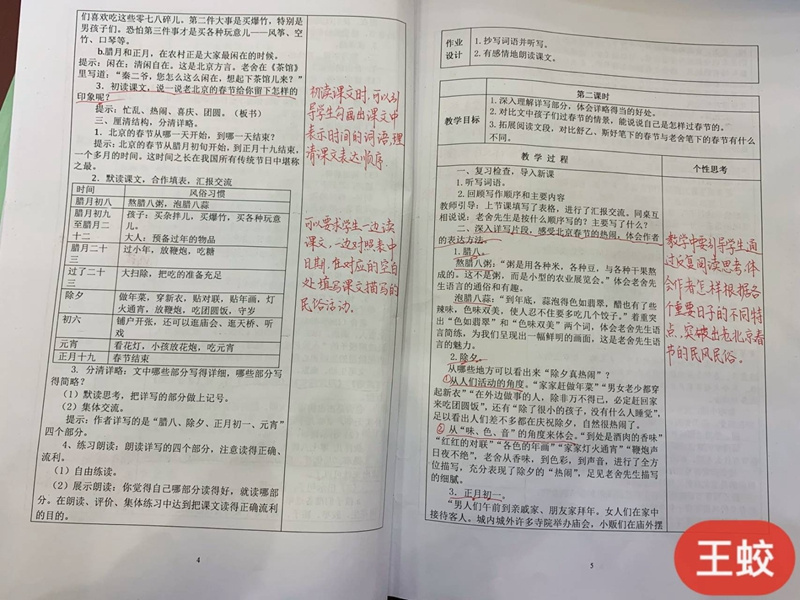 们喜欢吃这些零七八碎儿。第二件大事是买爆竹，特别是
男孩子们。恐怕第三件事才是买各种玩意儿——风筝、空
竹、口琴等。
b.腊月和正月，在农村正是大家最闲在的时候。
提示：闲在：清闲自在。这是北京方言。老舍在《茶馆》
里写道：“秦二爷，您怎么这么闲在，想起下茶馆儿来？”
3．初读课文，说一说老北京的春节给你留下怎样的
印象呢？
提示：忙乱、热闹、喜庆、团圆。（板书）
三、厘清结构，分清详略。
1．北京的春节从哪一天开始，到哪一天结束？
提示：北京的春节从腊月初旬开始，到正月十九结束，
一个多月的时间。这时间之长在我国所有传统节日中堪称
之最。
2．默读课文，合作填表，汇报交流
时间 风俗习惯
腊月初八 熬腊八粥，泡腊八蒜
腊月初九至腊月二十二 孩子：买杂拌儿，买爆竹，买各种玩意儿。
大人：预备过年的物品
腊月二十三 过小年，放鞭炮，吃糖
过了二十三 大扫除，把吃的准备充足
除夕 做年菜，穿新衣，贴对联，贴年画，灯火通宵，放鞭炮，吃团圆饭，守岁
初六 铺户开张，还可以逛庙会、逛天桥、听戏
元宵 看花灯，小孩放花炮，吃元宵
正月十九 春节结束
3．分清详略：文中哪些部分写得详细，哪些部分写
得简略？
（1）默读思考，把详写的部分做上记号。
（2）集体交流。
提示：作者详写的是“腊八、除夕、正月初一、元宵”
四个部分。
4、练习朗读：朗读详写的四个部分，注意读得正确、
流利。
（1）自由练读。
（2）展示朗读：你觉得自己哪部分读得好，就读哪部
分。在朗读、评价、集体练习中达到把课文读得正确流利
的目的。
初读课文时，可以引
导学生勾画出课文中
表示时间的词语，理
清课文表达顺序。
可以要求学生一边读
课文，一边对照表中
日期，在对应的空白
处填写课文描写的
民俗活动。
4
作业设计
1.抄写词语并听写。
2.有感情地朗读课文。
第二课时
教学目标
1.深入理解详写部分，体会详略得当的好处。
2.对比文中孩子们过春节的情景，能说说自己是怎样过春节的。
3.拓展阅读文段，对比舒乙、斯妤笔下的春节与老舍笔下的春节有什么
不同。
教 学 过 程
个性思考
一、复习检查，导入新课
1.听写词语。
2.回顾写作顺序和主要内容
教师引导：上节课填写了表格，进行了汇报交流。同桌互
相说说：老舍先生是按什么顺序写的？主要写了什么？
二、深入详写片段，感受北京春节的热闹，体会作者
的表达方法。
1.腊八。
熬腊八粥：“粥是用各种米，各种豆，与各种干果熬
成的。这不是粥，而是小型的农业展览会。”体会老舍先
生语言的通俗和有趣。
泡腊八蒜：“到年底，蒜泡得色如翡翠，醋也有了些
辣味，色味双美，使人忍不住要多吃几个饺子。”着重突
出“色如翡翠”和“色味双美”两个词，体会老舍先生语
言的精炼，为我们呈现出一幅鲜明的画面，这是老舍先生
语言的魅力。
2.除夕。
从哪些地方可以看出来“除夕真热闹”？
①从人们活动的角度。“家家赶做年菜”“男女老少都穿
起新衣”“在外边做事的人，除非万不得已，必定赶回家
来吃团圆饭”，还有“除了很小的孩子，没有什么人睡觉”，
足以看出人们差不多都在庆祝除夕，自然很热闹了。
②从“味、色、音”的角度来体会。“到处是酒肉的香味”
“红红的对联”“各色的年画”“家家灯火通宵”“鞭炮声
日夜不绝”，老舍从香味，到色彩，到声音，进行了全方
位描写，充分表现了除夕的“热闹”，足见老舍先生描写
的细腻。
3．正月初一。
“男人们午前到亲戚家、朋友家拜年。女人们在家中
接待客人。城内城外许多寺院举办庙会，小贩们在庙外摆
教学中要引导学生通
过反复阅读思考，体
会作者怎样根据各
个重要日子的不同特
点，突出老北京春
节的民风民俗。
5
王蛟